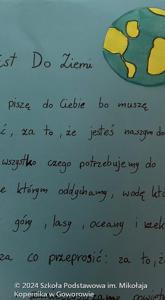 ist Do Ziemi
piszę do Ciebie bo muszę
ć, za to, że jesteś naszym do
wszystko czego potrzebujemy do
e którym oddychamy, wodę któ
góry, lasy, oceany i rzek
za co przeprosić: za to, ż
© 2024 Szkoła Podstawowa im. Mikołaja
Kopernika w Goworowie